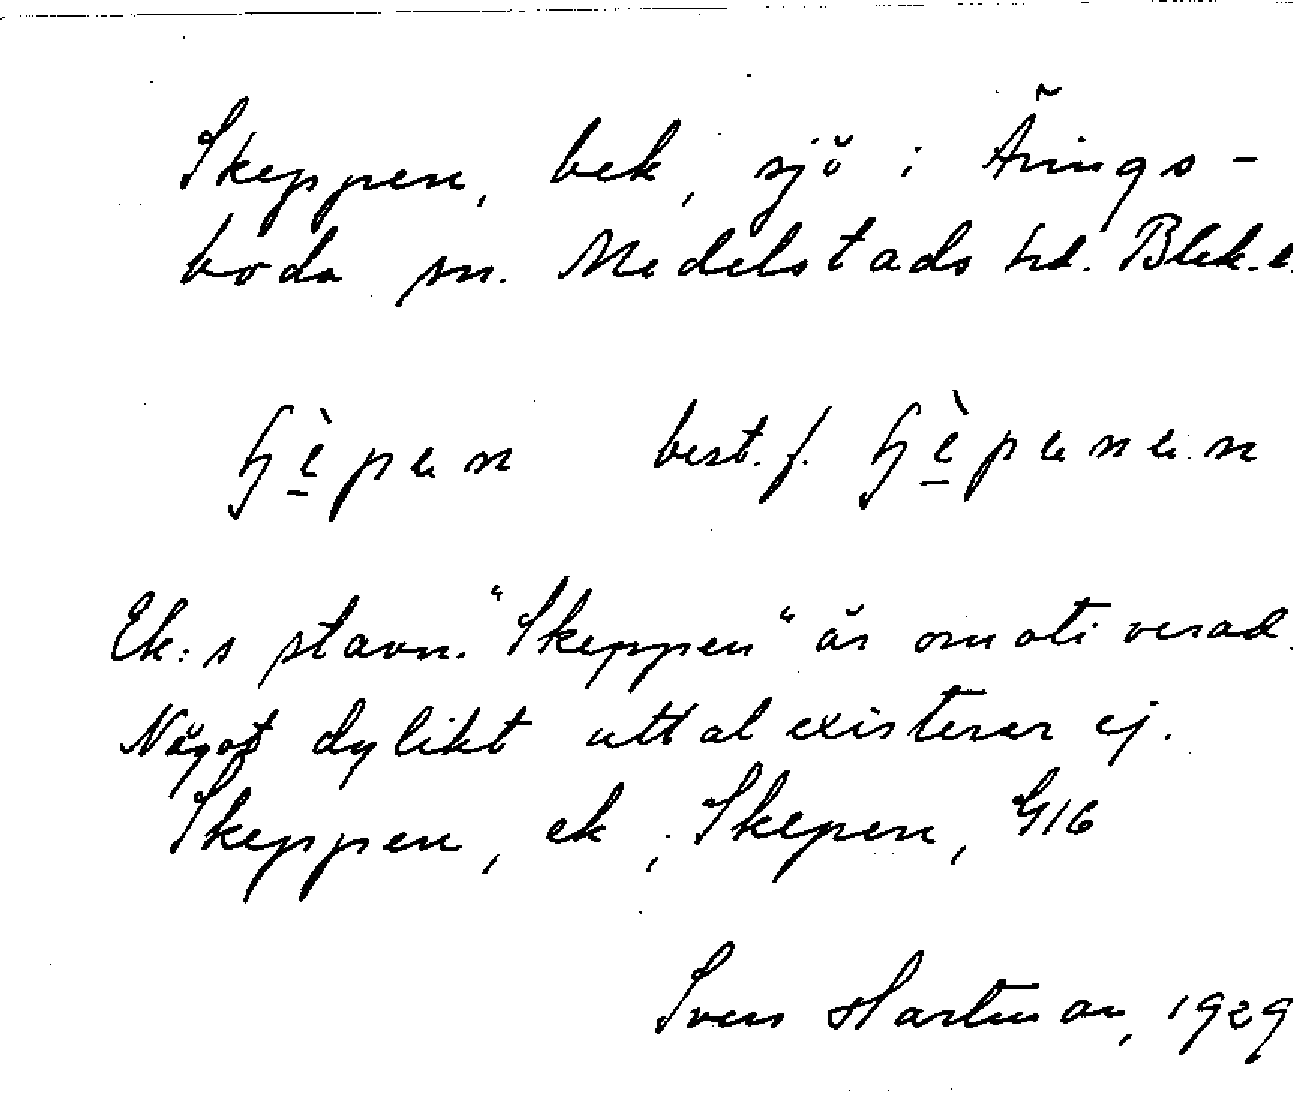 Skeppen, bek, sjö i Årings-
boda sn. Medelstads hd. Blek.l.
best. f.
Ek:s stavn. "Skeppen" är omotiverad.
Något dylikt uttal existerar ej.
Skeppen, ek; Skepen, G16
Sven Hartman, 1929